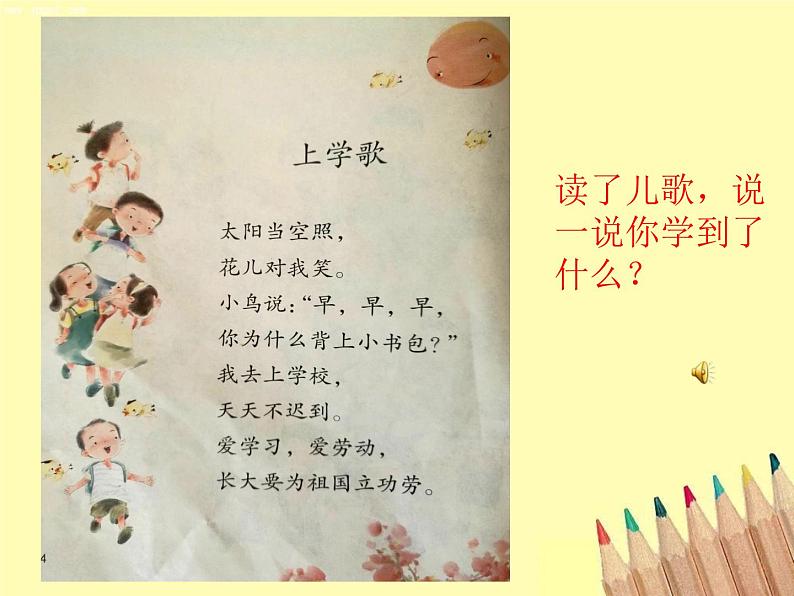 上学歌
太阳当空照，
花儿对我笑。
小鸟说：“早，早，早，
你为什么背上小书包？”
我去上学校，
天天不迟到。
爱学习，爱劳动，
长大要为祖国立功劳。
4
读了儿歌，说
一说你学到了
什么？